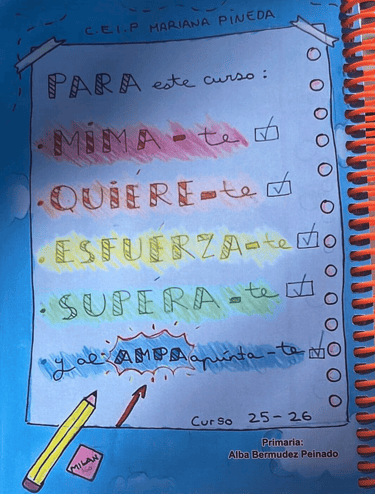 C.E.I.P MARIANA PINEDA
PARA este curso:
· MÍMA-te
· QUIERE-te
· ESFUERZA-te
· SUPERA-te
· y al AMPA apunta-te
Curso 25-26
MILAN
Primaria:
Alba Bermudez Peinado